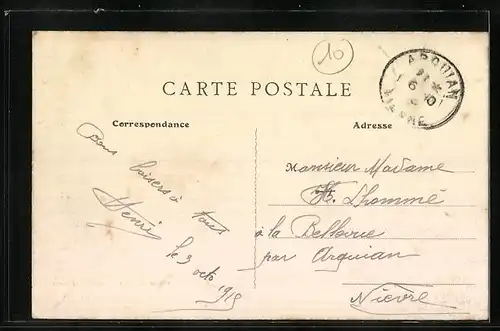 10
ARQUIAN
CARTE POSTALE
Correspondance
Adresse
Bons baisers à tous
Henri
le 3 octo 1915
Monsieur Madame
H. Lhommé
à la Bellevue
par Arquian
Nièvre